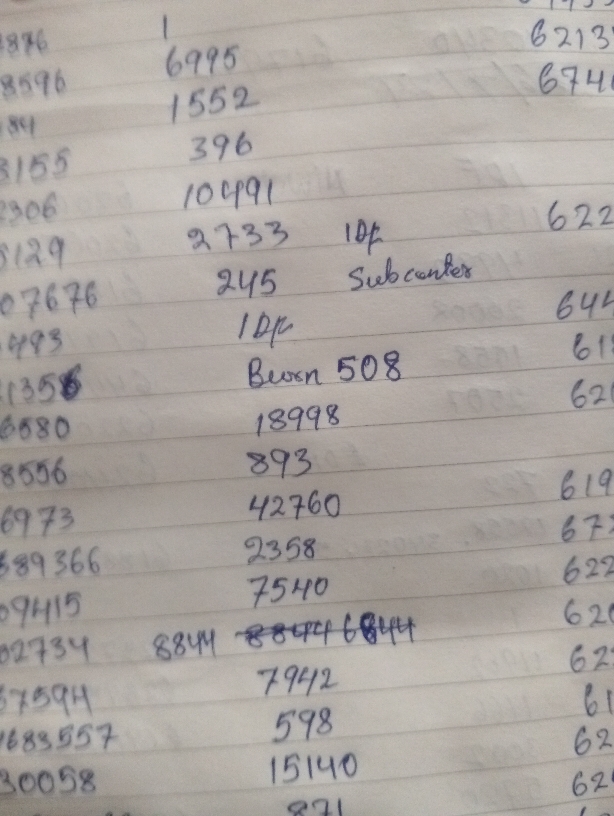 3876 1 6213
8596 6995 674
184 1552
3155 396
2306 10491
5129 2733 IDf 622
07676 245 Subcenter
493 IDf 644
21356 Burn 508 61
6580 18998 62
8556 893
6973 42760 619
589366 2358 67
09415 7540 622
02734 8844 62
57594 7942 62
1683557 598 61
30058 15140 62
871 62